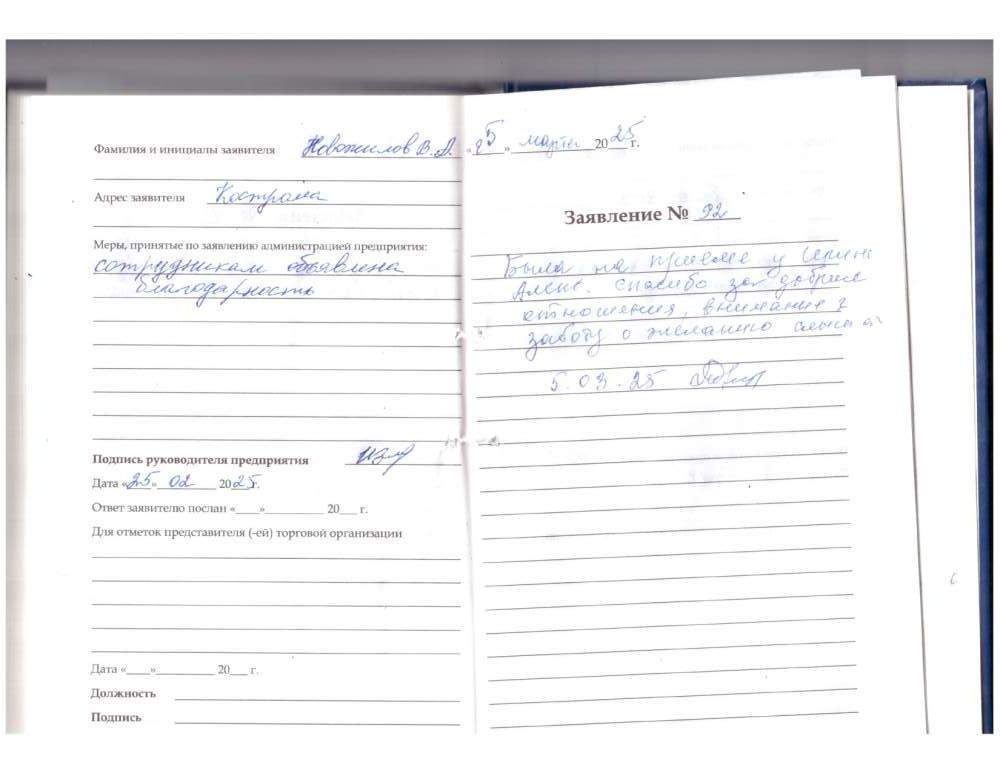 Фамилия и инициалы заявителя Новожилов В.А.
Адрес заявителя Кострома
Меры, принятые по заявлению администрацией предприятия:
сотрудникам объявлена
благодарность
Подпись руководителя предприятия
Дата «25» 02 2025г.
Ответ заявителю послан «____»__________ 20___ г.
Для отметок представителя (-ей) торговой организации
Дата «____»__________ 20___ г.
Должность
Подпись
«5» марта 2025 г.
Заявление № 92
Была на приеме у
Спасибо за доброе
отношения, внимание
заботу о
5.03.25